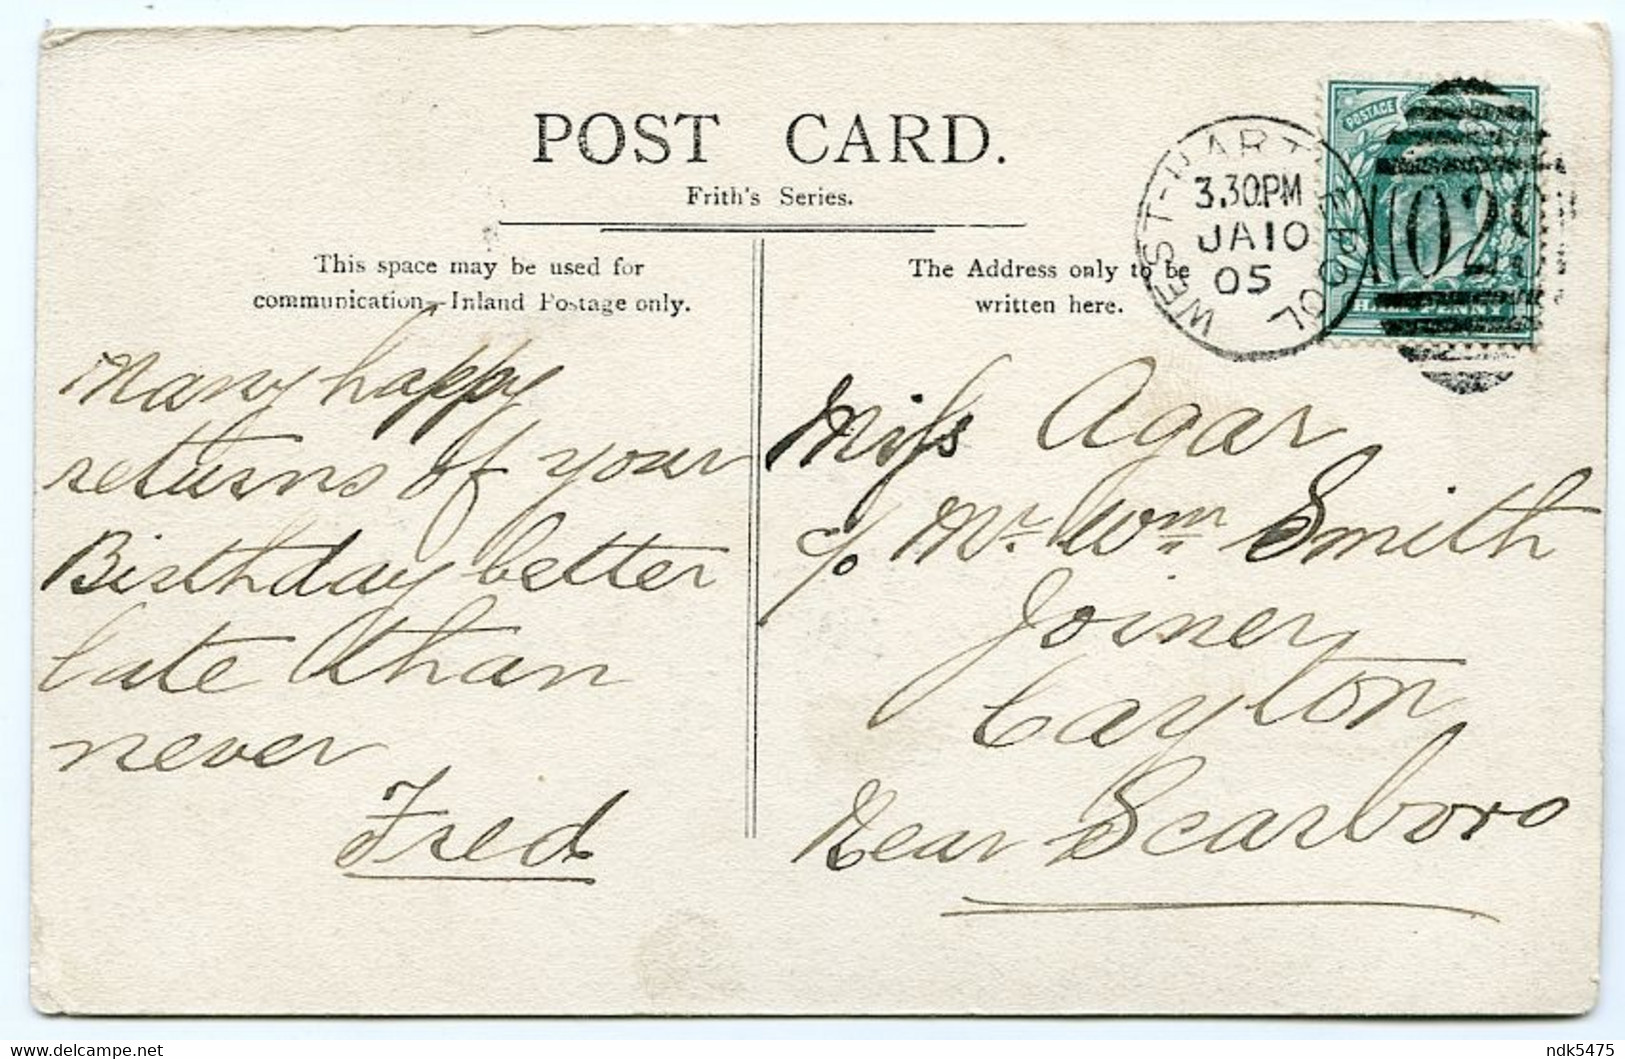 POST CARD.
Frith's Series.
This space may be used for
communication—Inland Postage only.
The Address only to be
written here.
WEST-HARTLEPOOL
3.30PM
JA10
05
1029
POSTAGE
HALF PENNY
Many happy
returns of your
Birthday better
late than
never
Fred
Miss Agar
c/o Mr. Wm Smith
Joiner
Cayton
Near Scarboro
delcampe.net
ndk5475